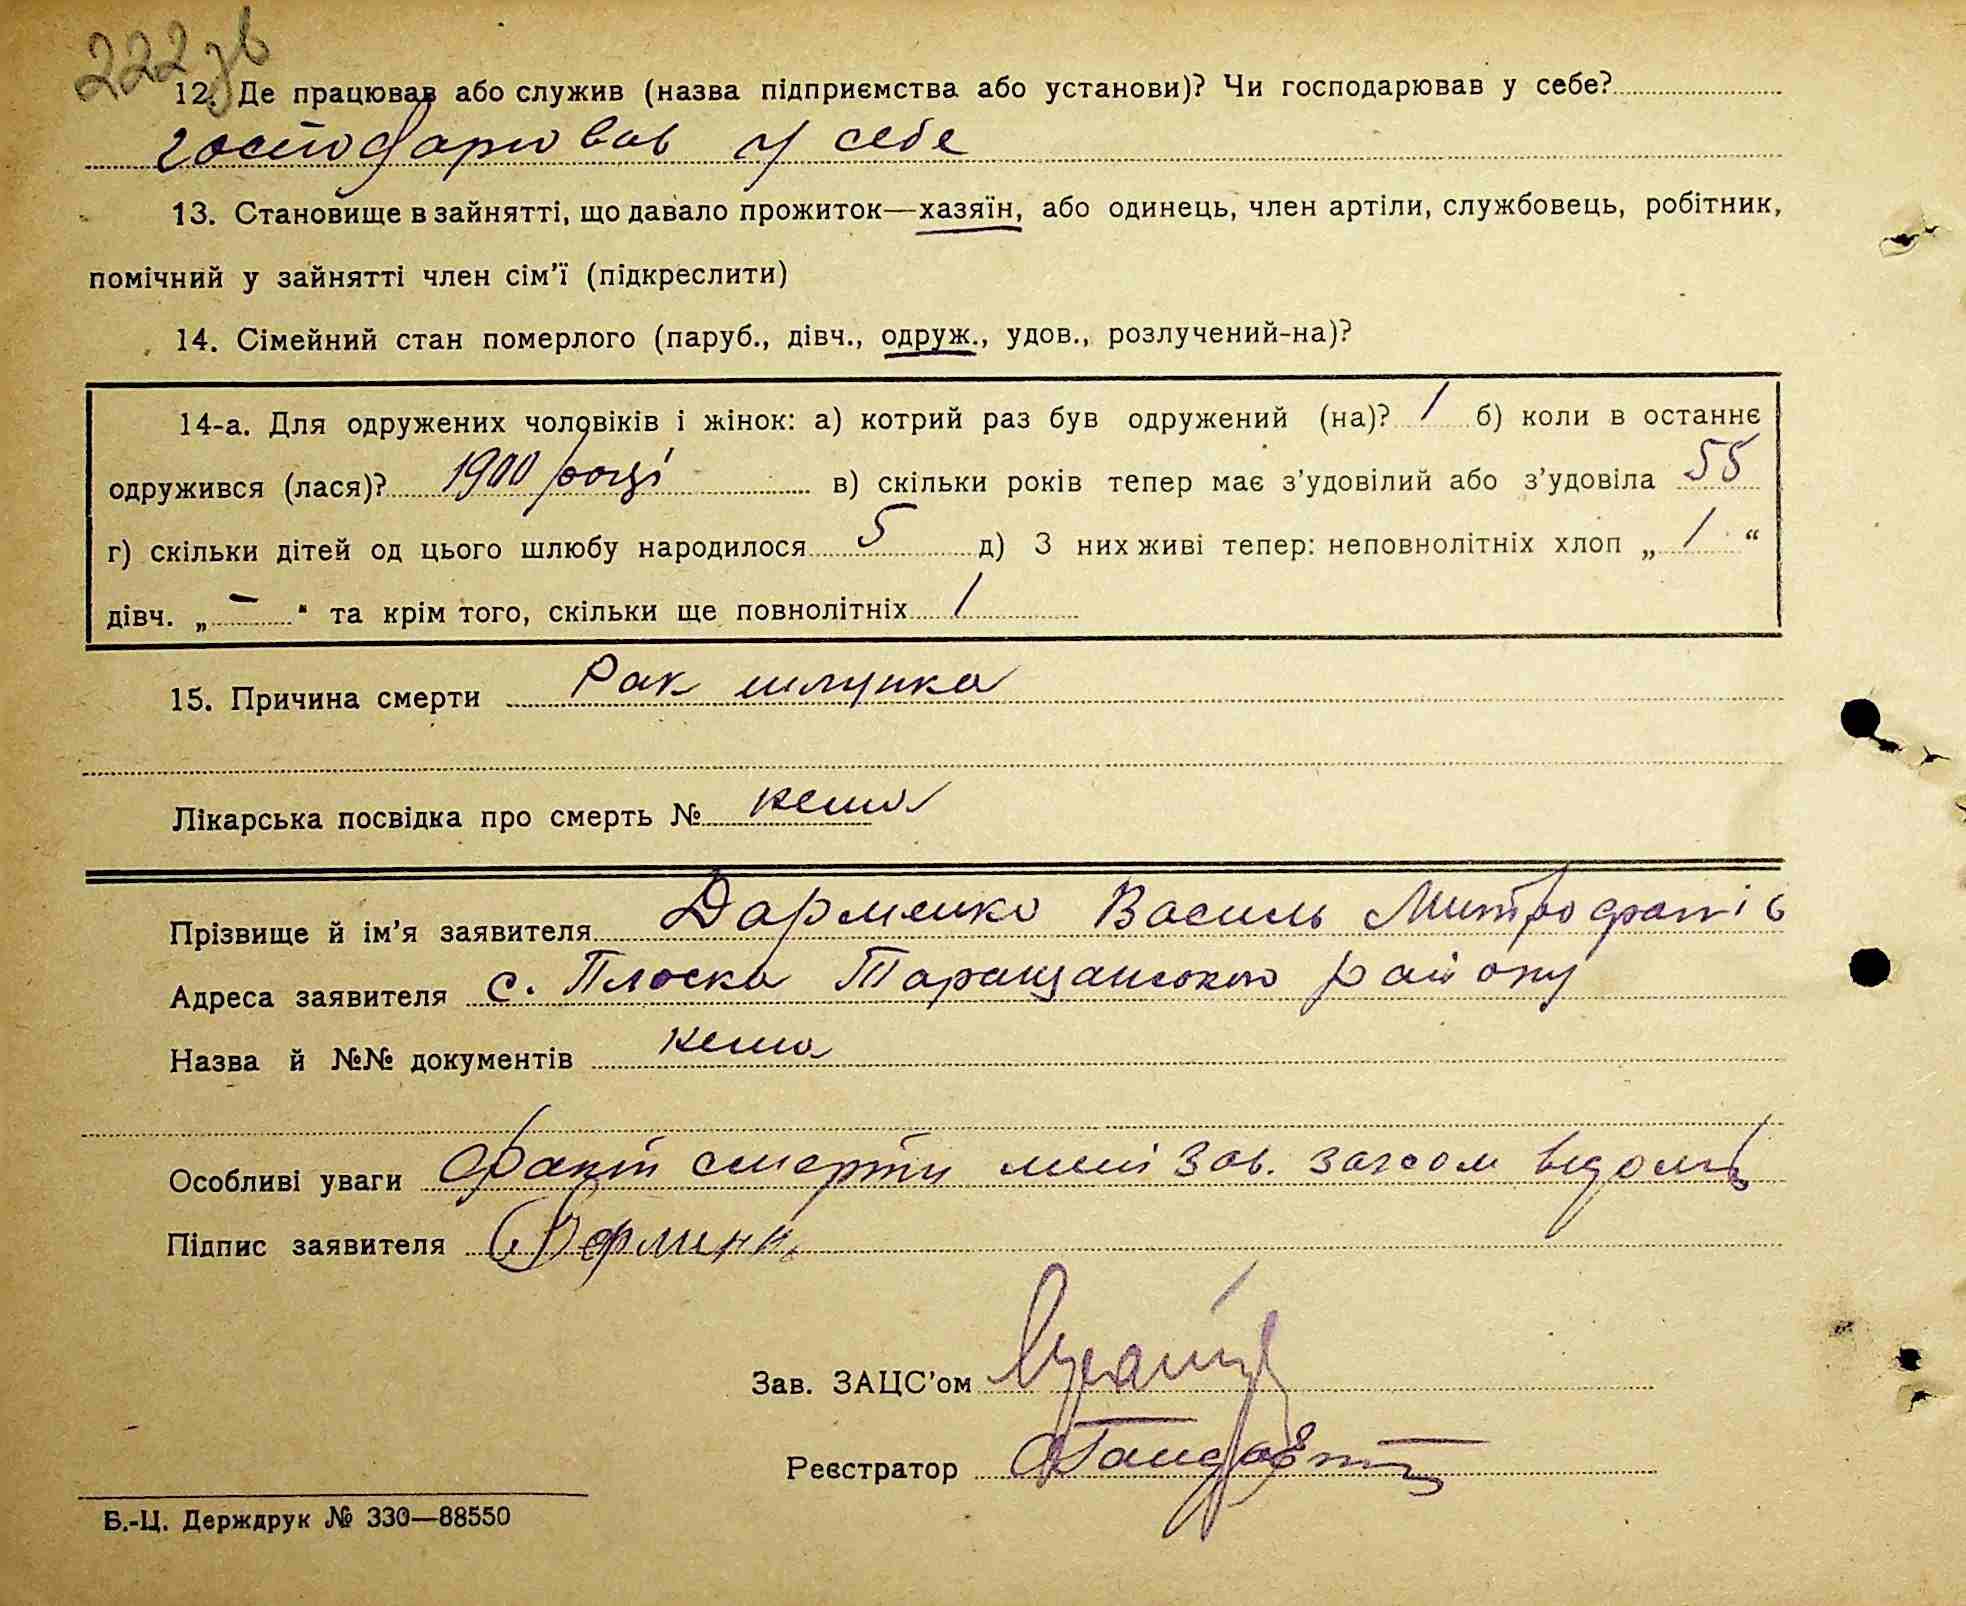 222 зв
12. Де працював або служив (назва підприємства або установи)? Чи господарював у себе?
господарював у себе
13. Становище в зайнятті, що давало прожиток—хазяїн, або одинець, член артіли, службовець, робітник,
помічний у зайнятті член сім'ї (підкреслити)
14. Сімейний стан померлого (паруб., дівч., одруж., удов., розлучений-на)?
14-а. Для одружених чоловіків і жінок: а) котрий раз був одружений (на)? 1 б) коли в останнє
одружився (лася)? 1900 році в) скільки років тепер має з'удовілий або з'удовіла 55
г) скільки дітей од цього шлюбу народилося 5 д) З них живі тепер: неповнолітніх хлоп „ 1 “
дівч. „ — “ та крім того, скільки ще повнолітніх 1
15. Причина смерти Рак шлунка
Лікарська посвідка про смерть № нема
Прізвище й ім'я заявителя Дарменко Василь Митрофанів
Адреса заявителя с. Плоска Таращанського району
Назва й №№ документів нема
Особливі уваги Факт смерти мені зав. загсом відомий
Підпис заявителя
Зав. ЗАЦС'ом
Реєстратор
Б.-Ц. Держдрук № 330—88550